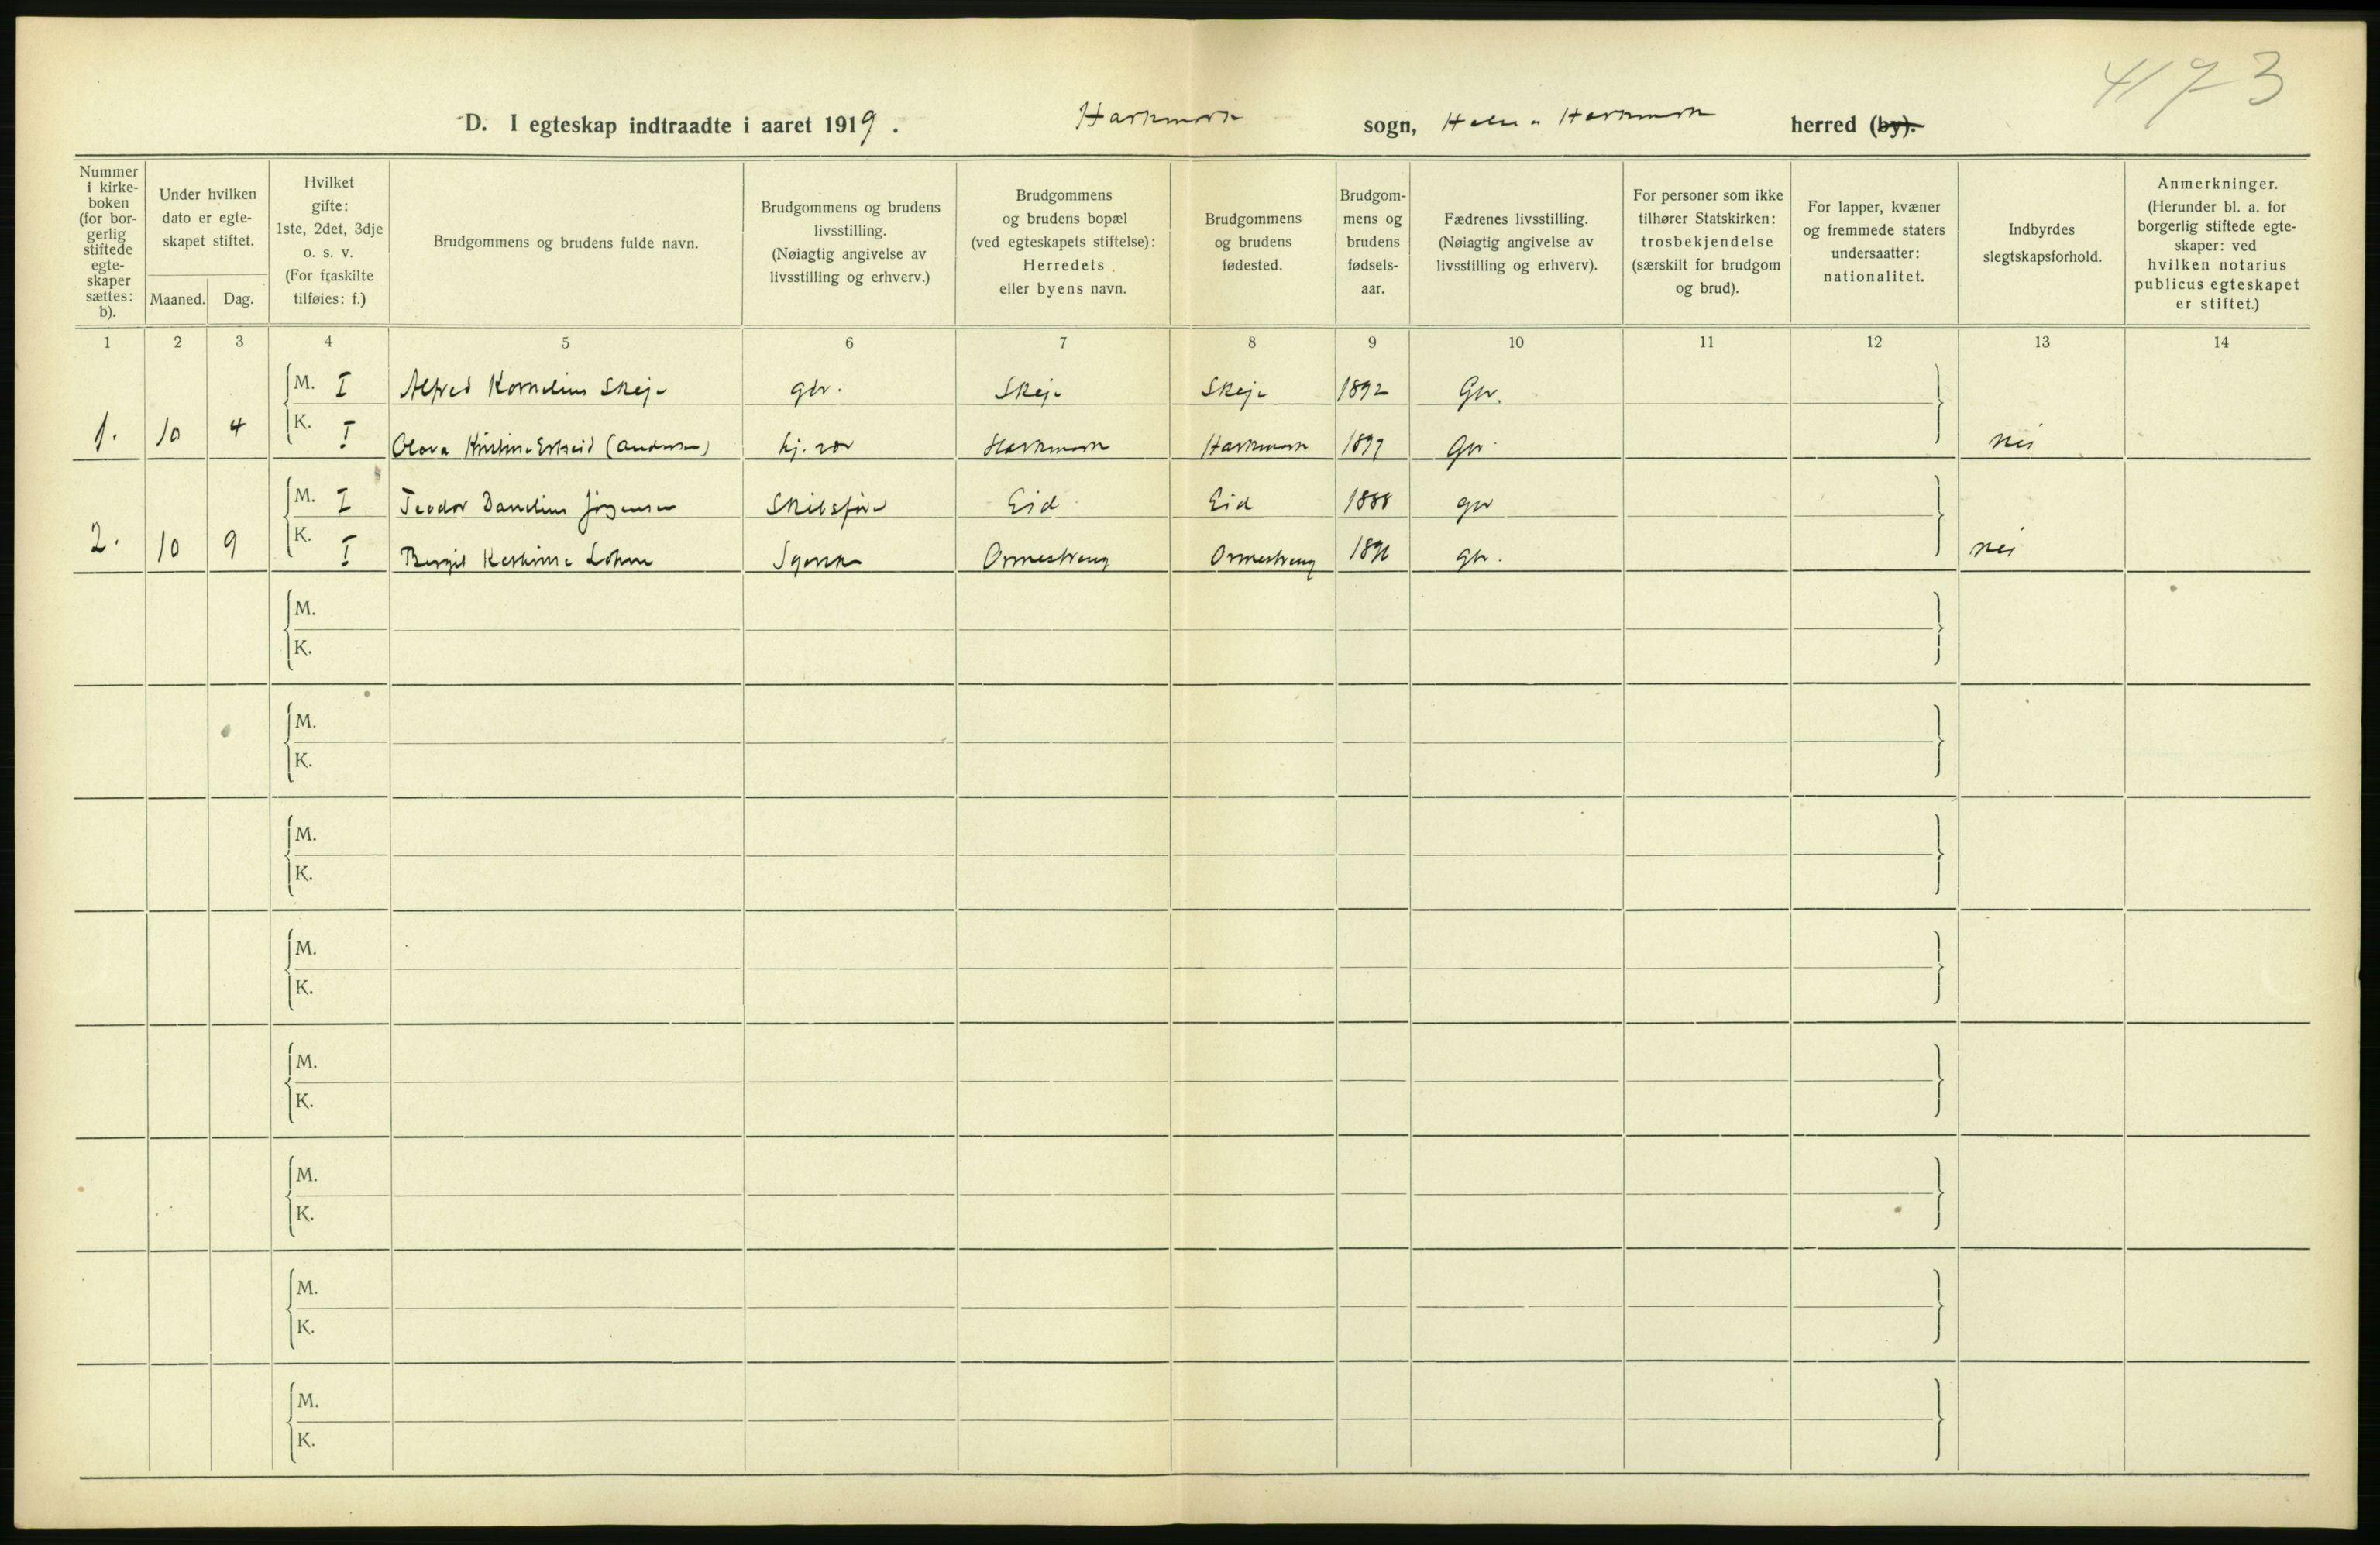 4173
D. I egteskap indtraadte i aaret 1919. Harkmark sogn, Halse o Harkmark herred (by).
Nummer i kirke-boken (for bor-gerlig stiftede egte-skaper sættes: b).
Under hvilken dato er egte-skapet stiftet.
Maaned. Dag.
Hvilket gifte: 1ste, 2det, 3dje o. s. v. (For fraskilte tilføies: f.)
Brudgommens og brudens fulde navn.
Brudgommens og brudens livsstilling. (Nøiagtig angivelse av livsstilling og erhverv.)
Brudgommens og brudens bopæl (ved egteskapets stiftelse): Herredets eller byens navn.
Brudgommens og brudens fødested.
Brudgom-mens og brudens fødsels-aar.
Fædrenes livsstilling. (Nøiagtig angivelse av livsstilling og erhverv).
For personer som ikke tilhører Statskirken: trosbekjendelse (særskilt for brudgom og brud).
For lapper, kvæner og fremmede staters undersaatter: nationalitet.
Indbyrdes slegtskapsforhold.
Anmerkninger. (Herunder bl. a. for borgerlig stiftede egte-skaper: ved hvilken notarius publicus egteskapet er stiftet.)
1 2 3 4 5 6 7 8 9 10 11 12 13 14
M. I Alfred Kornelius Skeje gbr. Skeje Skeje 1892 Gbr.
1. 10 4 K. I Olava Kristine (Andersen) hj. vær Harkmark Harkmark 1897 Gbr. nei
M. I Teodor Danelius Jørgensen Skibsfører Eid Eid 1888 gbr
2. 10 9 K. I Bergit Lohne Syerske Ormestrong Ormestrong 1896 gbr. nei
M.
K.
M.
K.
M.
K.
M.
K.
M.
K.
M.
K.
M.
K.
M.
K.